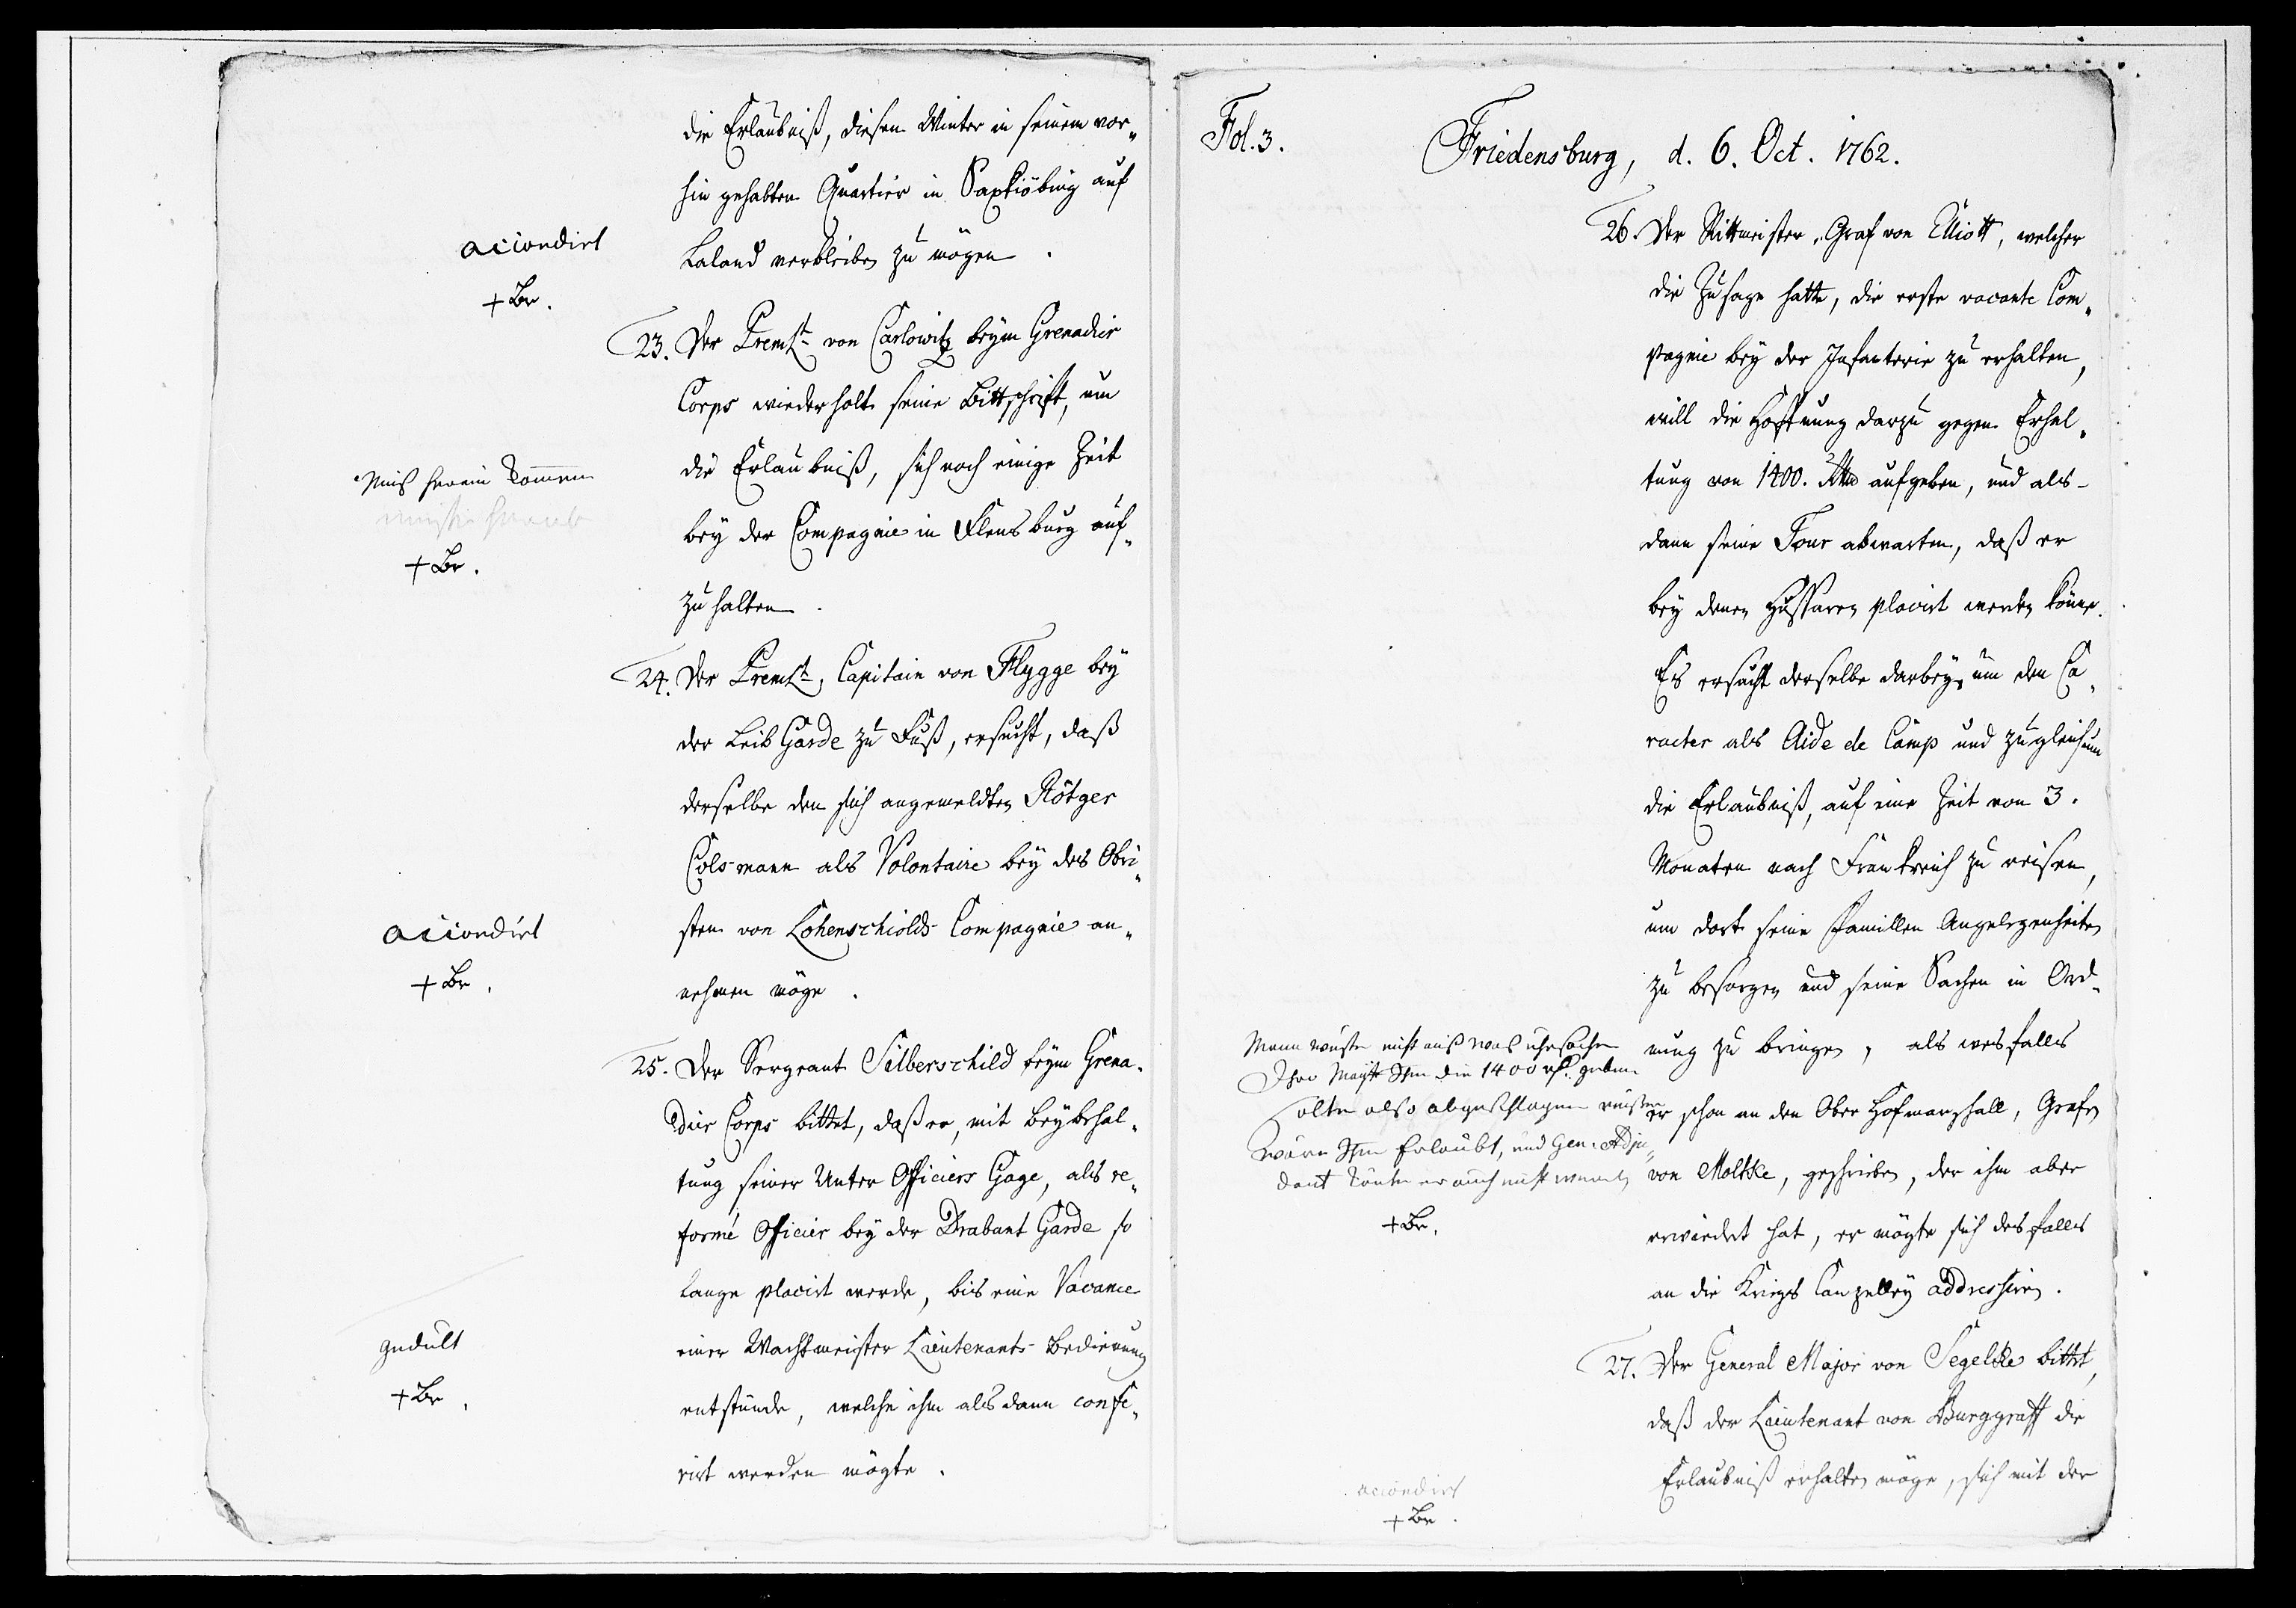 die Erlaubniß, diesen Winter in seinem vor„
hin gehabten Quartier in Saxkiöbing auf
Laland verbleiben zu mögen.
accordirt
+ Br.
23. Der Premlt von Carlowitz beym Grenadier
Corps wiederholt seine Bittschrift, um
die Erlaubniß, sich noch einige Zeit
bey der Compagnie in Flensburg auf„
zuhalten.
Muß herein kommen
+ Br.
24. Der Premlt, Capitain von Flygge bey
der Leib Garde zu Fuß, ersucht, daß
derselbe den sich angemeldten Rötger
Colsmann als Volontaire bey des Obri„
sten von Lohenschiolds Compagnie an„
nehmen möge.
accordirt
+ Br.
25. Der Sergeant Silberschild beym Grena„
dier Corps bittet, daß er, mit Beybehal„
tung seiner Unter Officiers Gage, als re„
formé Officier bey der Drabant Garde so
lange placirt werde, bis eine Vacance
einer Wachtmeister Lieutenants-Bedienung
entstünde, welche ihm alsdann confe„
rirt werden mögte.
gedult
+ Br.
Fol. 3.
Friedensburg, d. 6. Oct. 1762.
26. Der Rittmeister, Graf von Elliott, welcher
die Zusage hatte, die erste vacante Com„
pagnie bey der Infanterie zu erhalten,
will die Hoffnung darzu gegen Erhal„
tung von 1400. Rthlr aufgeben, und als-
dann seine Tour abwarten, daß er
bey denen Hussaren placirt werden könne.
Es ersucht derselbe darbey um den Ca„
racter als Aide de Camp und zugleich um
die Erlaubniß, auf eine Zeit von 3.
Monaten nach Frankreich zu reisen,
um dort seine Familien Angelegenheiten
zu besorgen und seine Sachen in Ord„
nung zu bringen, als wesfalls
er schon an den Ober Hofmarschall, Grafen
von Moltke, geschrieben, der ihm aber
erwiedert hat, er mögte sich desfalls
an die Kriegs Canzelley addressiren.
Mann wüste nicht auß was uhrsache
Ihro Maytt Ihm die 1400 geben
solte also abgeschlagen reißen
wäre Ihm Erlaubt, und Gen: Adju„
dant könte er auch nicht werden
+ Br.
27. Der General Major von Segelcke bittet,
daß der Lieutenant von Burggraff die
Erlaubniß erhalten möge, sich mit der
accordirt
+ Br.